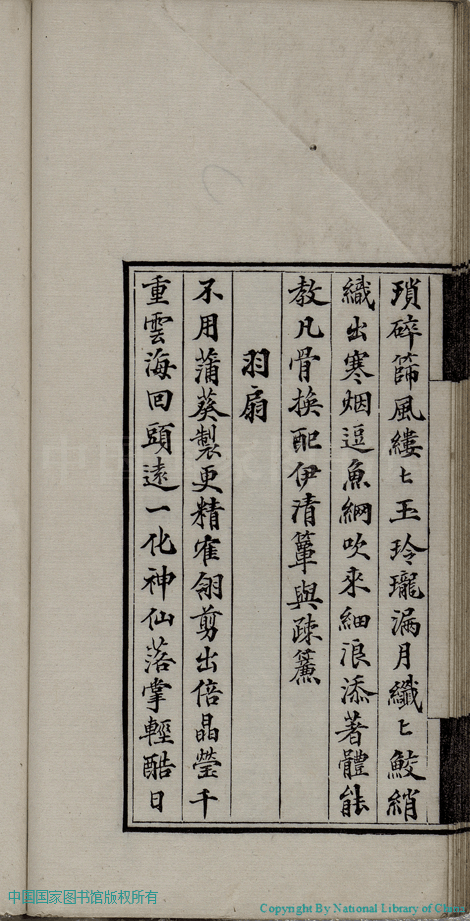 瑣碎篩風縷〻玉玲瓏漏月纖〻鮫綃
織出寒烟逗魚網吹來細浪添著體能
教凡骨換配伊清簟與疎簾
羽扇
不用蒲葵製更精隺翎剪出倍晶瑩千
重雲海回頭遠一化神仙落掌輕酷日
中国国家图书馆版权所有
Copyright By National Library of Chin